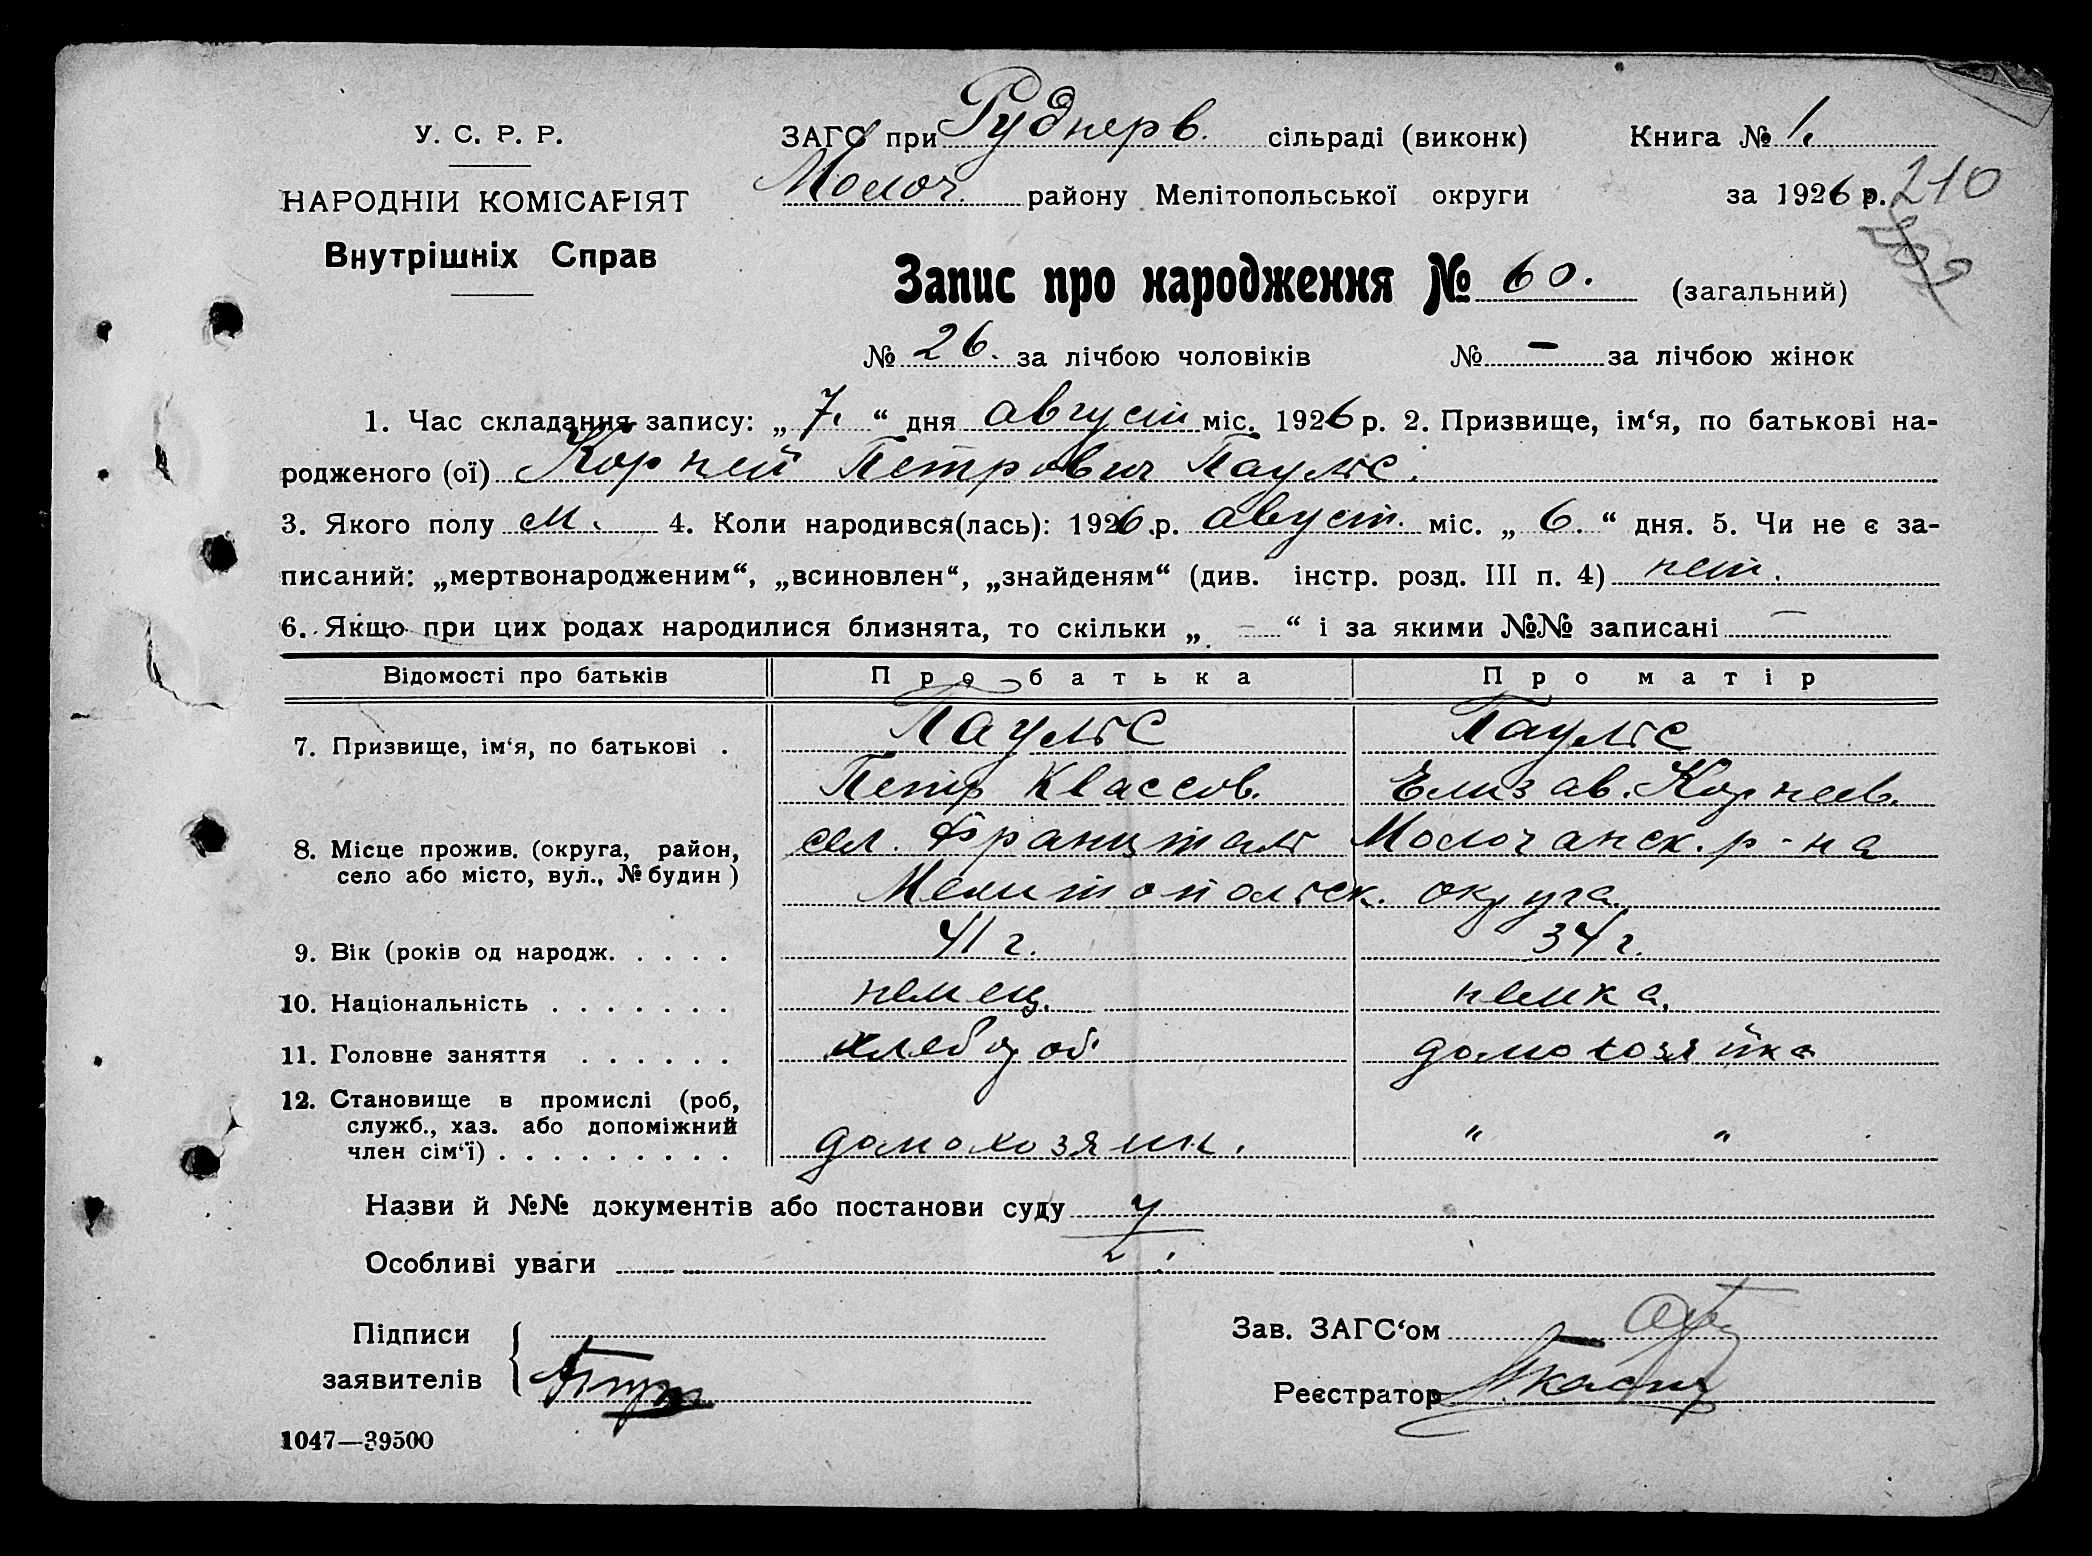 У. С. Р. Р.
НАРОДНІЙ КОМІСАРІЯТ
Внутрішніх Справ
ЗАГС при Руднерв. сільраді (виконк) Книга № 1.
Молоч. району Мелітопольської округи за 1926 р. 210
Запис про народження № 60. (загальний)
№ 26. за лічбою чоловіків № – за лічбою жінок
1. Час складання запису: „ 7. “ дня август міс. 1926 р. 2. Призвище, ім‘я, по батькові на-
родженого (ої) Корней Петрович Паульс.
3. Якого полу м. 4. Коли народився(лась): 1926 р. август. міс. „ 6. “ дня. 5. Чи не є за-
писаний: „мертвонародженим“, „всиновлен“, „знайденям“ (див. інстр. розд. III п. 4) нет.
6. Якщо при цих родах народилися близнята, то скільки „ – “ і за якими №№ записані —
Відомості про батьків Про батька Про матір
7. Призвище, ім‘я, по батькові . Паульс Паульс
Петр Классов. Елизав. Корнеев.
8. Місце прожив. (округа, район, село або місто, вул., № будин) сел. Францталь Молочанск. р-на
Мелитопольск. округа.
9. Вік (років од народж. . . . . 41 г. 34 г.
10. Національність . . . . . . . немец. немка.
11. Головне заняття . . . . . . хлебороб домохозяйка
12. Становище в промислі (роб,
служб., хаз. або допоміжний
член сім‘ї) . . . . . . . . . домохозяин. " "
Назви й №№ документів або постанови суду
Особливі уваги
Підписи
заявителів
Зав. ЗАГС‘ом
Реєстратор
1047—39500